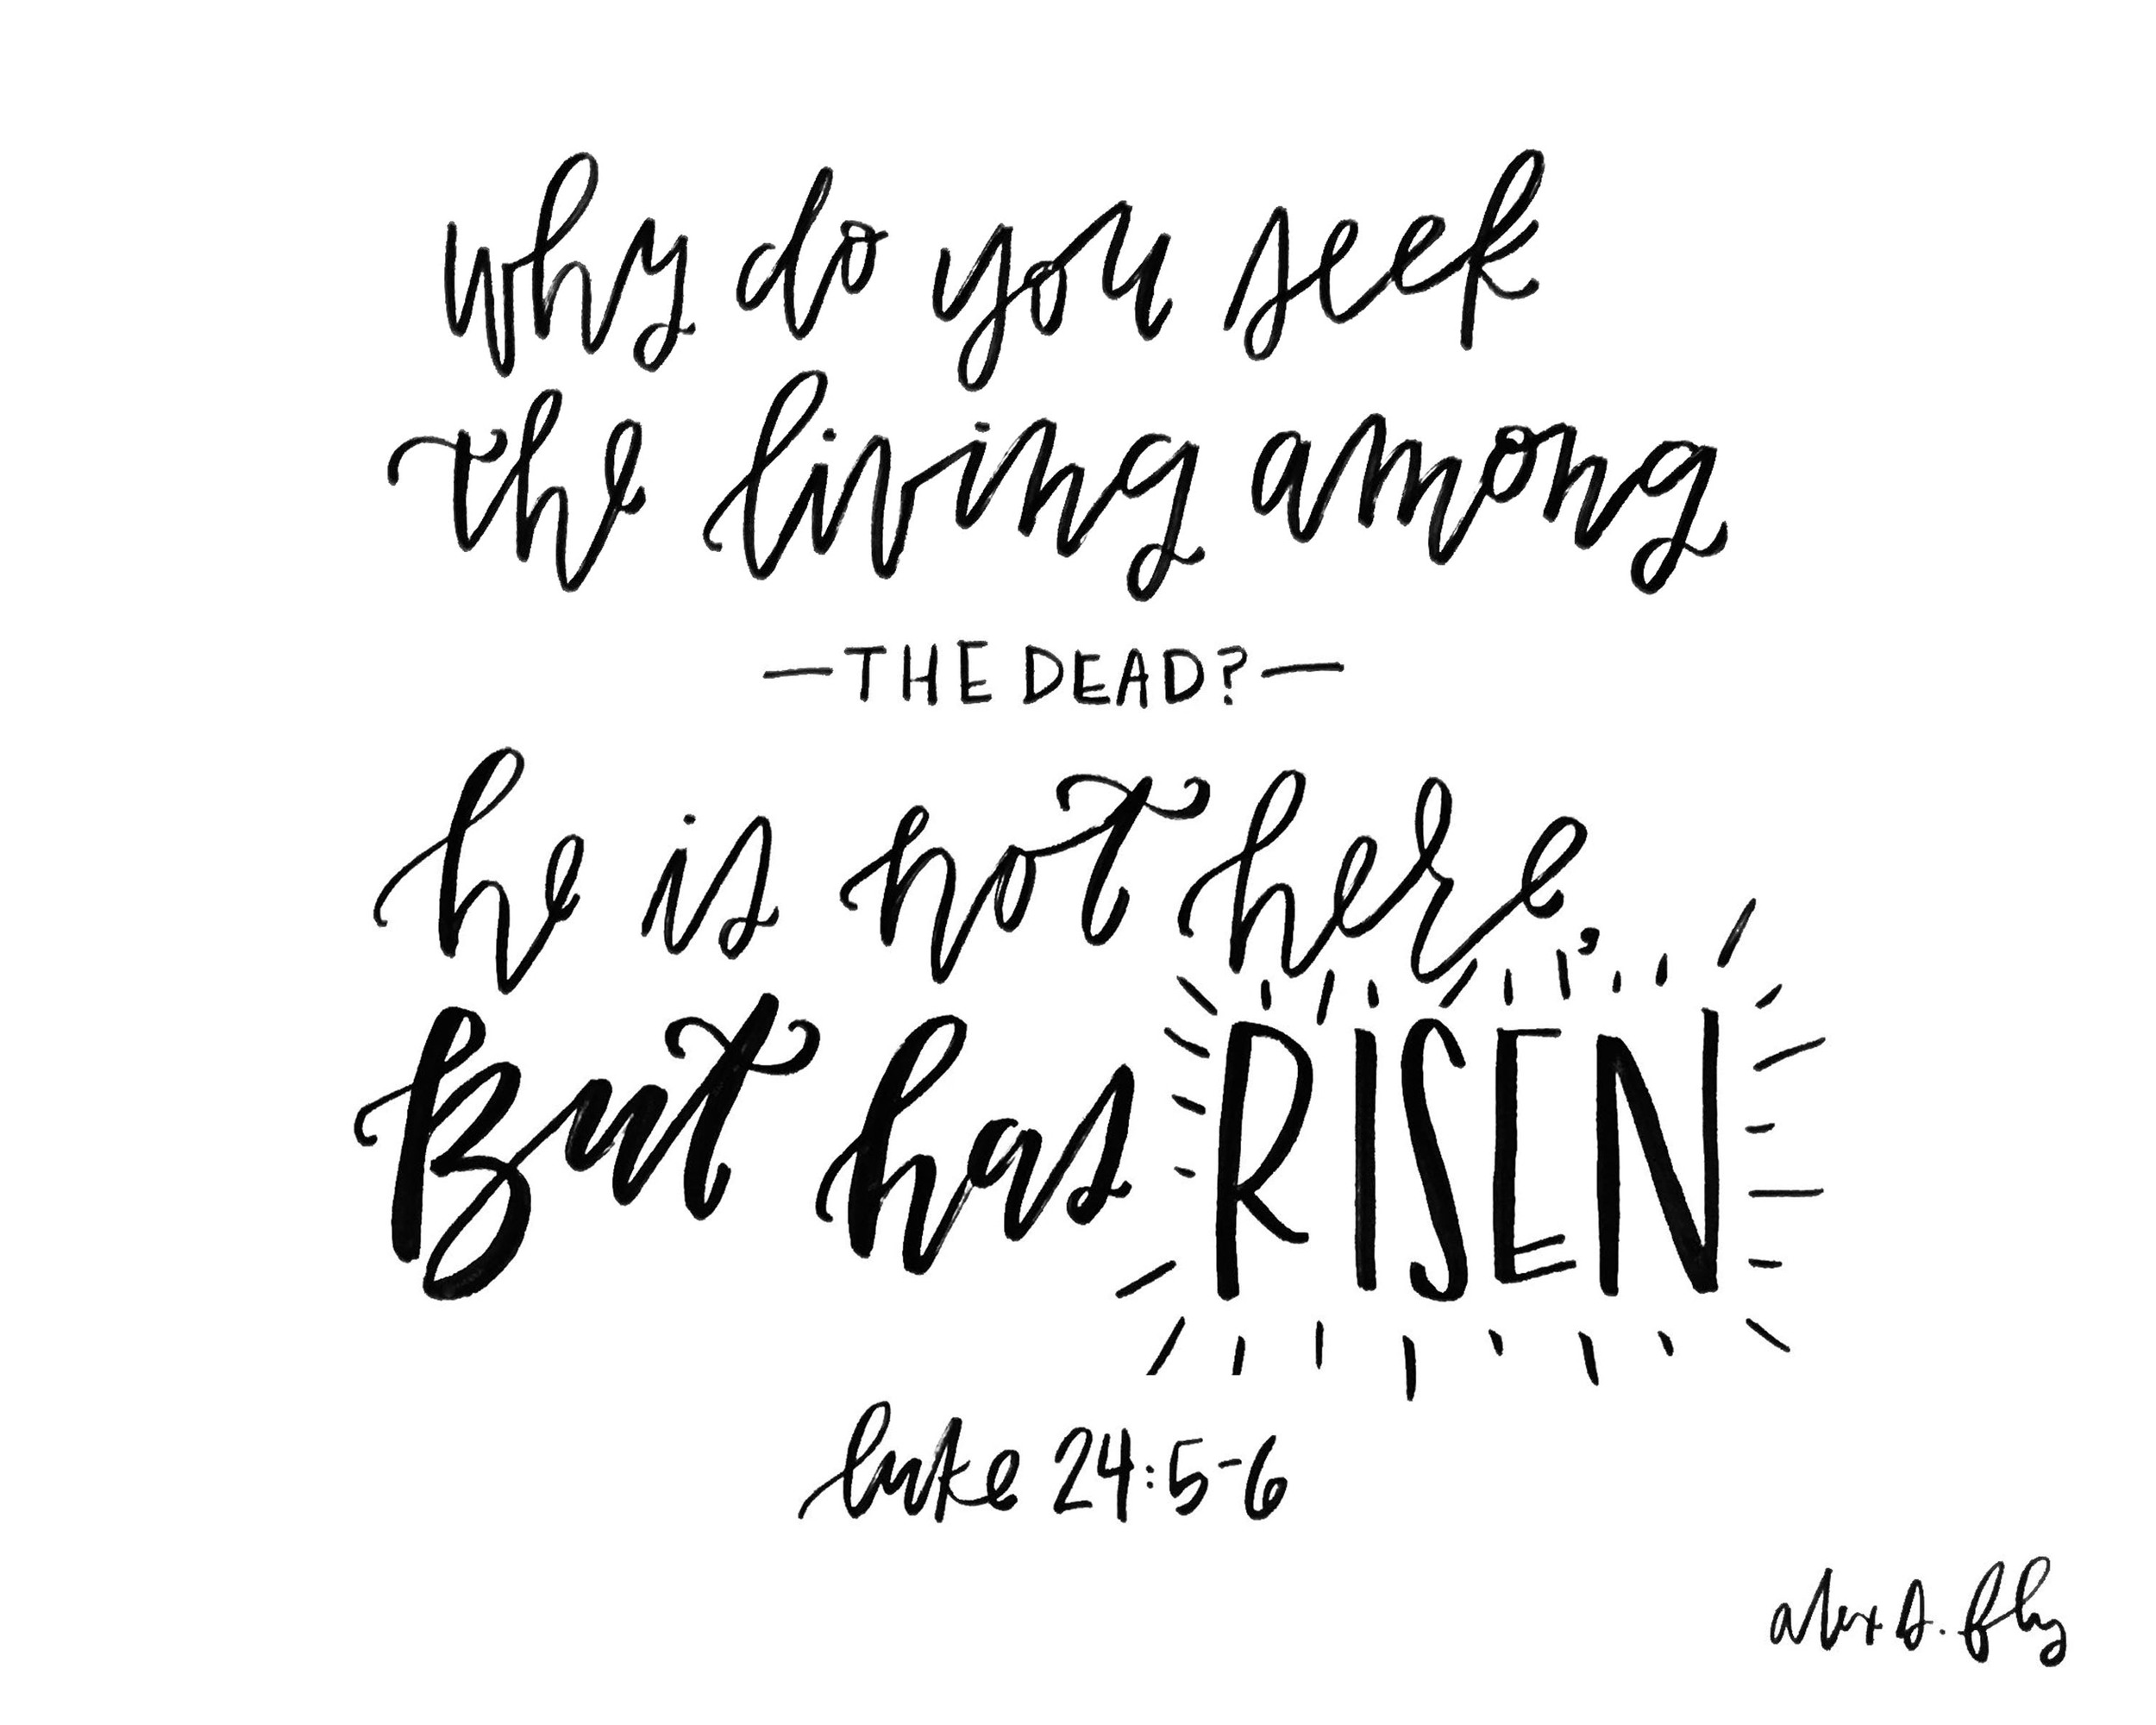 why do you seek
the living among
—THE DEAD?—
he is not here,
But has RISEN
luke 24:5-6
alex s. fly